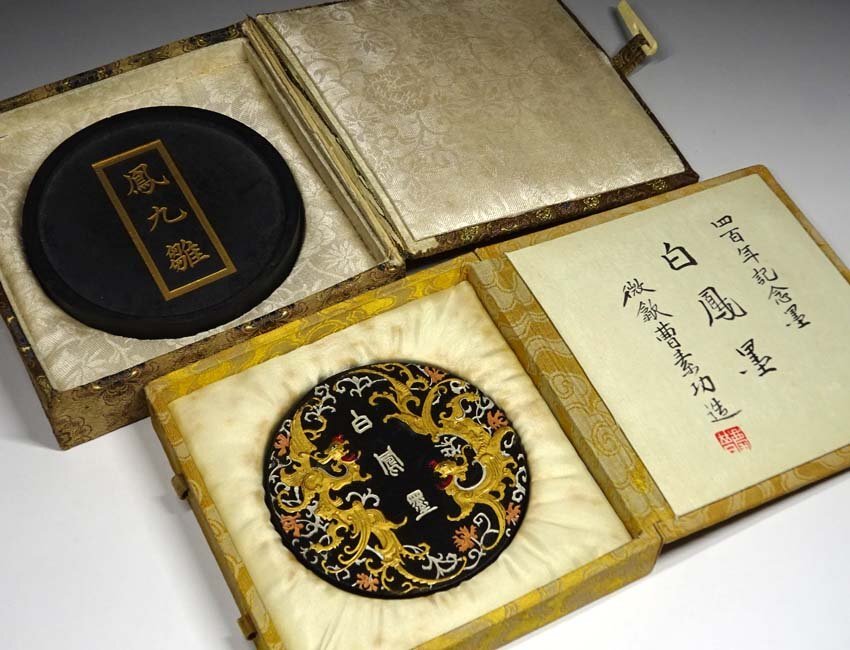 鳳九雛
白鳳墨
四百年記念墨
白鳳墨
徽歙曹素功造